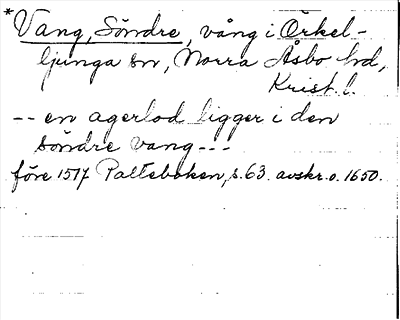 *Vang, Söndre, vång i Örkel-
ljunga sn, Norra Åsbo hd,
Krist. l.
-- en agerlod ligger i den
söndre vang ---
före 1517 Palteboken, s. 63. avskr. o. 1650.